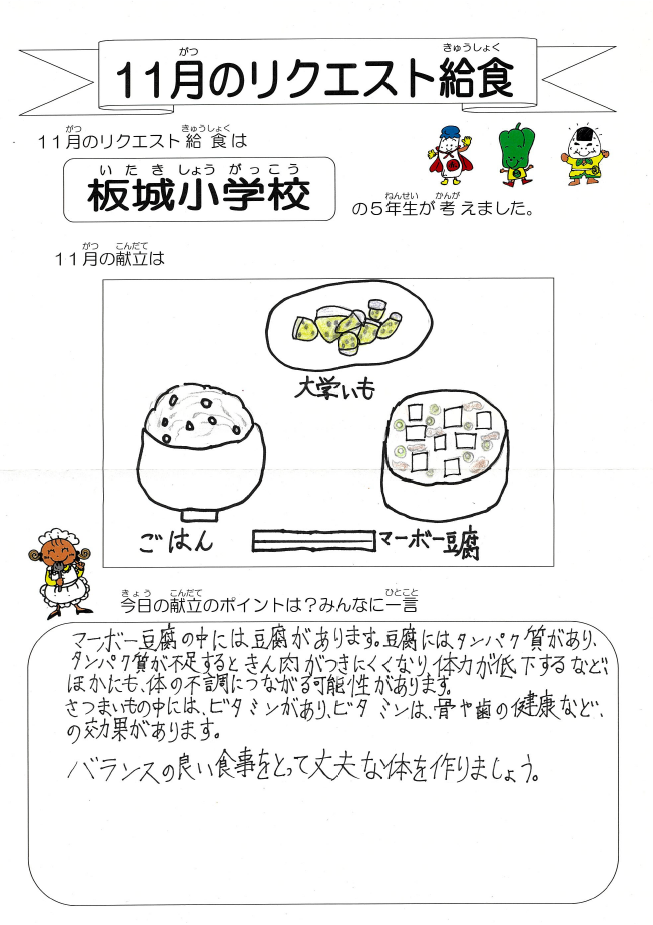 11月のリクエスト給食
がつ
きゅうしょく
11月のリクエスト給食は
がつ
きゅうしょく
板城小学校
いたきしょうがっこう
の5年生が考えました。
ねんせい
かんが
11月の献立は
がつ
こんだて
大学いも
ごはん
マーボー豆腐
今日の献立のポイントは?みんなに一言
きょう
こんだて
ひとこと
マーボー豆腐の中には豆腐があります。豆腐には、タンパク質があり、
タンパク質が不足するときん肉がつきにくくなり、体力が低下するなど、
ほかにも、体の不調につながる可能性があります。
さつまいもの中には、ビタミンがあり、ビタミンは、骨や歯の健康など、
の効果があります。
バランスの良い食事をとって丈夫な体を作りましょう。